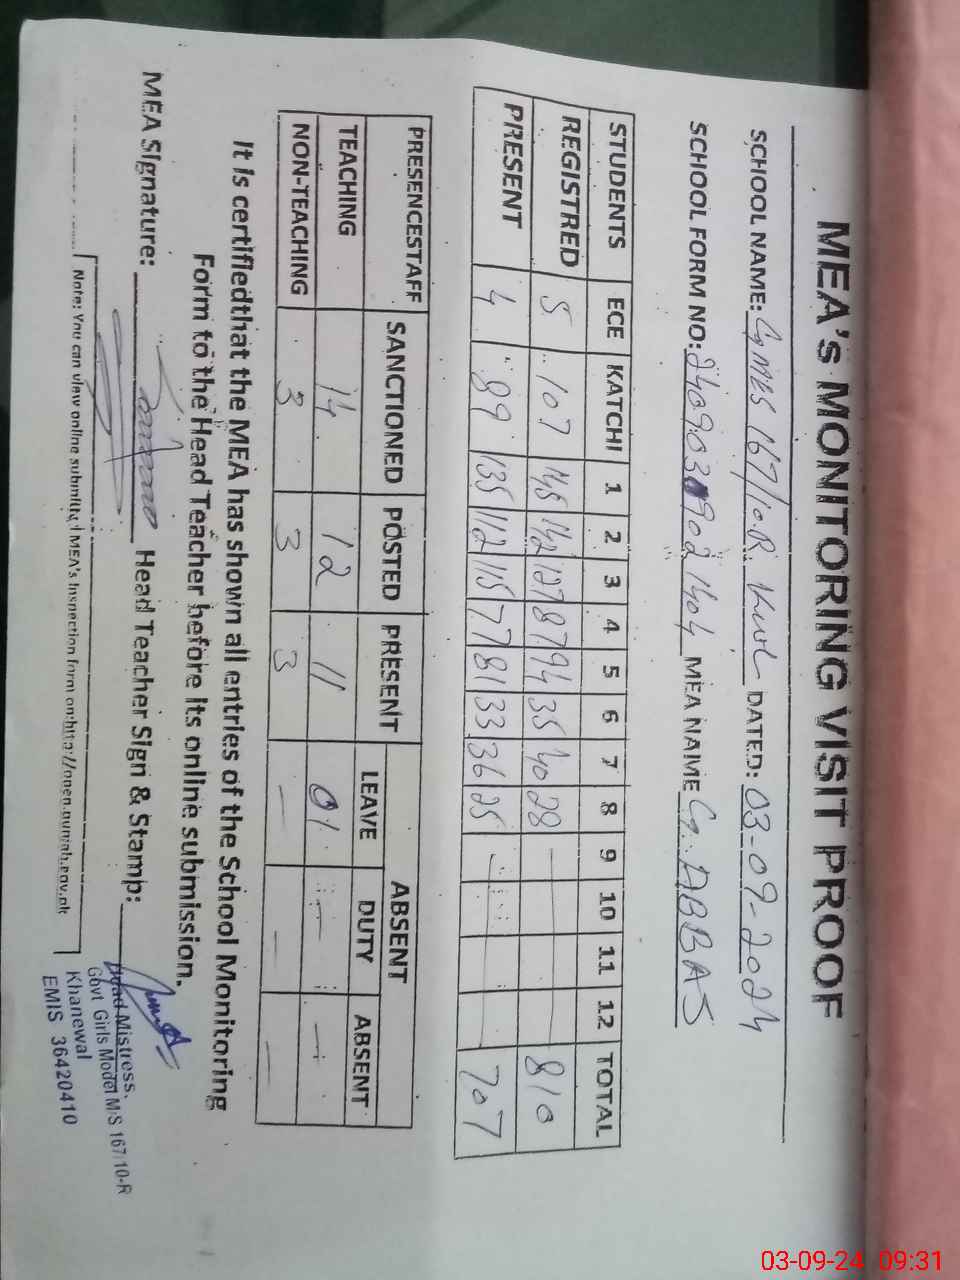 MEA's MONITORING VISIT PROOF
SCHOOL NAME: GGMES 167/10.R KWL DATED: 03-09-2024
SCHOOL FORM NO: MEA NAME G. ABBAS
STUDENTS ECE KATCHI 1 2 3 4 5 6 7 8 9 10 11 12 TOTAL
REGISTRED 5 107 145 142 127 87 94 35 40 28 — — — — 810
PRESENT 4 89 135 112 115 77 81 33 36 25 — — — — 707
PRESENCESTAFF SANCTIONED POSTED PRESENT ABSENT
LEAVE DUTY ABSENT
TEACHING 14 12 11 01 — —
NON-TEACHING 3 3 3 — — —
It is certifiedthat the MEA has shown all entries of the School Monitoring
Form to the Head Teacher before its online submission.
MEA Signature: Head Teacher Sign & Stamp:
Head Mistress.
Govt Girls Model M/S 167/10-R
Khanewal
EMIS 36420410
Note: You can view online submitted MEA's Inspection form on:http://open.punjab.gov.pk
03-09-24 09:31